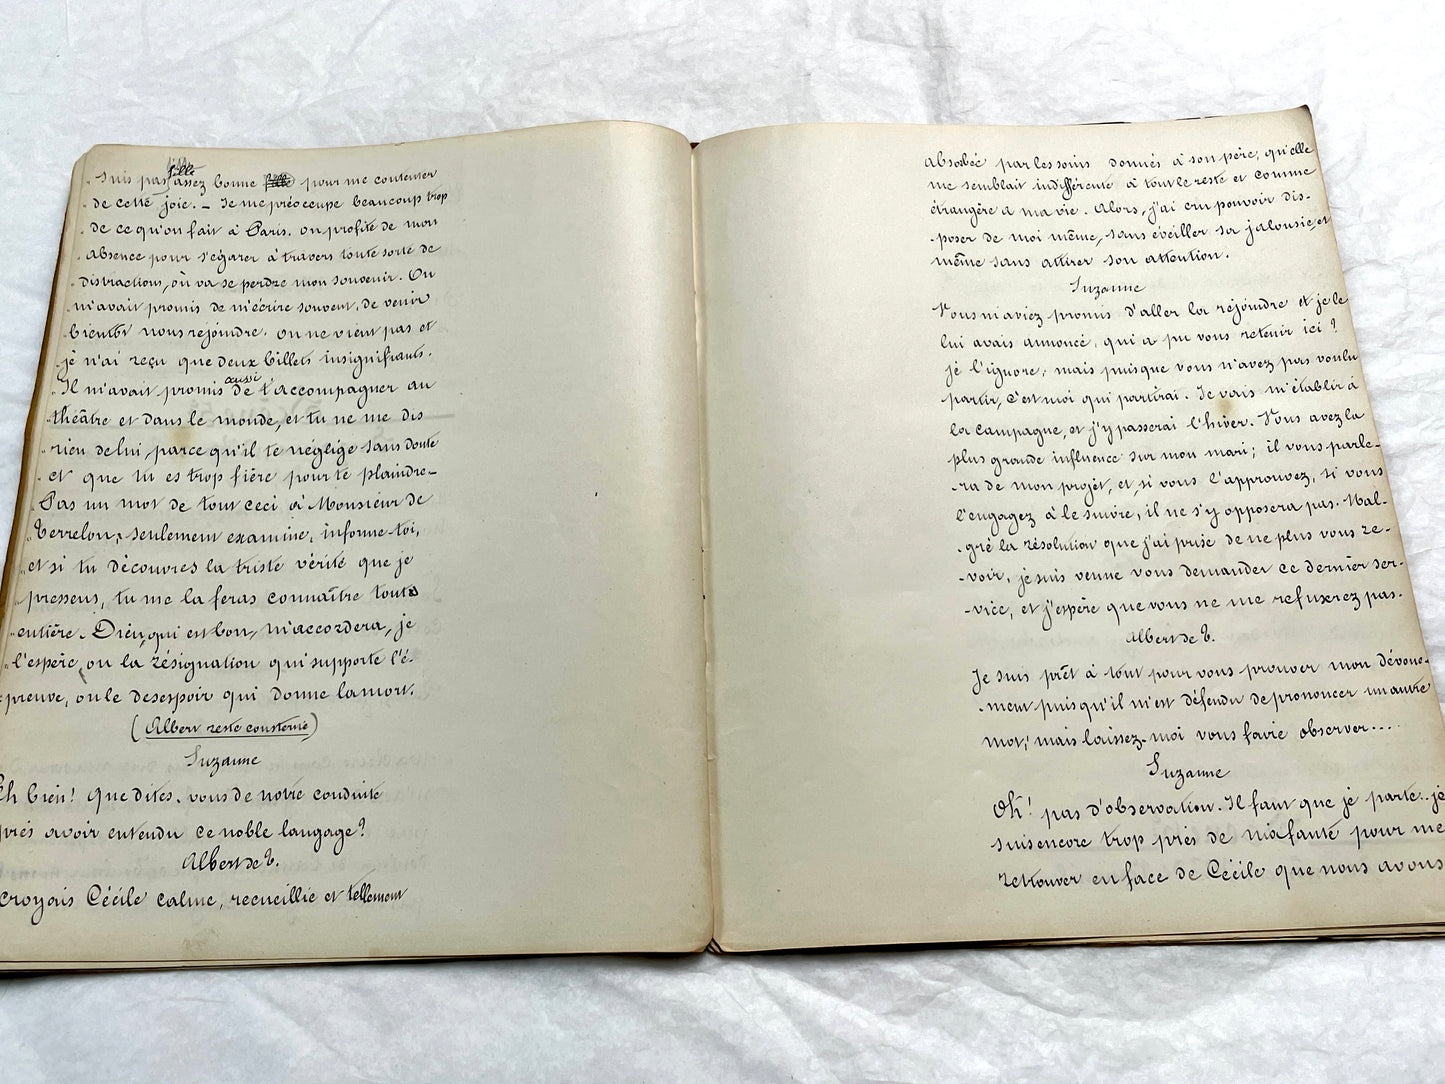 fille
„ suis pas assez bonne pour me contenter
„ de cette joie. — Je me préoccupe beaucoup trop
„ de ce qu'on fait à Paris. on profite de mon
„ absence pour s'égarer à travers toute sorte de
„ distractions, où va se perdre mon souvenir. On
„ m'avait promis de m'écrire souvent, de venir
„ bientôt nous rejoindre. on ne vient pas et
„ je n'ai reçu que deux billets insignifiants.
„ Il m'avait promis aussi de t'accompagner au
„ théâtre et dans le monde, et tu ne me dis
„ rien de lui, parce qu'il te néglige sans doute
„ et que tu es trop fière pour te plaindre —
„ Pas un mot de tout ceci à Monsieur de
„ Terrelon; seulement examine, informe-toi,
„ et si tu découvres la triste vérité que je
„ pressens, tu me la feras connaître toute
„ entière. Dieu, qui est bon, m'accordera, je
„ l'espère, ou la résignation qui supporte l'é-
preuve, ou le desespoir qui donne la mort.
(Albert reste consterné)
Suzanne
Eh bien! que dites-vous de notre conduite
près avoir entendu ce noble langage?
Albert de T.
croyais Cécile calme, recueillie et tellement
absorbée par les soins donnés à son père, qu'elle
me semblait indifférente à tout le reste et comme
étrangère à ma vie. Alors, j'ai cru pouvoir dis-
-poser de moi même, sans éveiller sa jalousie, et
même sans attirer son attention.
Suzanne
Vous m'aviez promis d'aller la rejoindre et je le
lui avais annoncé, qui a pu vous retenir ici?
je l'ignore; mais puisque vous n'avez pas voulu
partir, c'est moi qui partirai. Je vais m'établir à
la campagne, et j'y passerai l'hiver. Vous avez la
plus grande influence sur mon mari; il vous parle-
-ra de mon projet, et, si vous l'approuvez, si vous
l'engagez à le suivre, il ne s'y opposera pas. Mal-
-gré la résolution que j'ai prise de ne plus vous re-
-voir, je suis venue vous demander ce dernier ser-
-vice, et j'espère que vous ne me refuserez pas.
Albert de T.
Je suis prêt à tout pour vous prouver mon dévoue-
-ment puisqu'il m'est défendu de prononcer un autre
mot; mais laissez-moi vous faire observer....
Suzanne
Oh! pas d'observation. Il faut que je parte.. je
suis encore trop près de ma faute pour me
retrouver en face de Cécile que nous avons